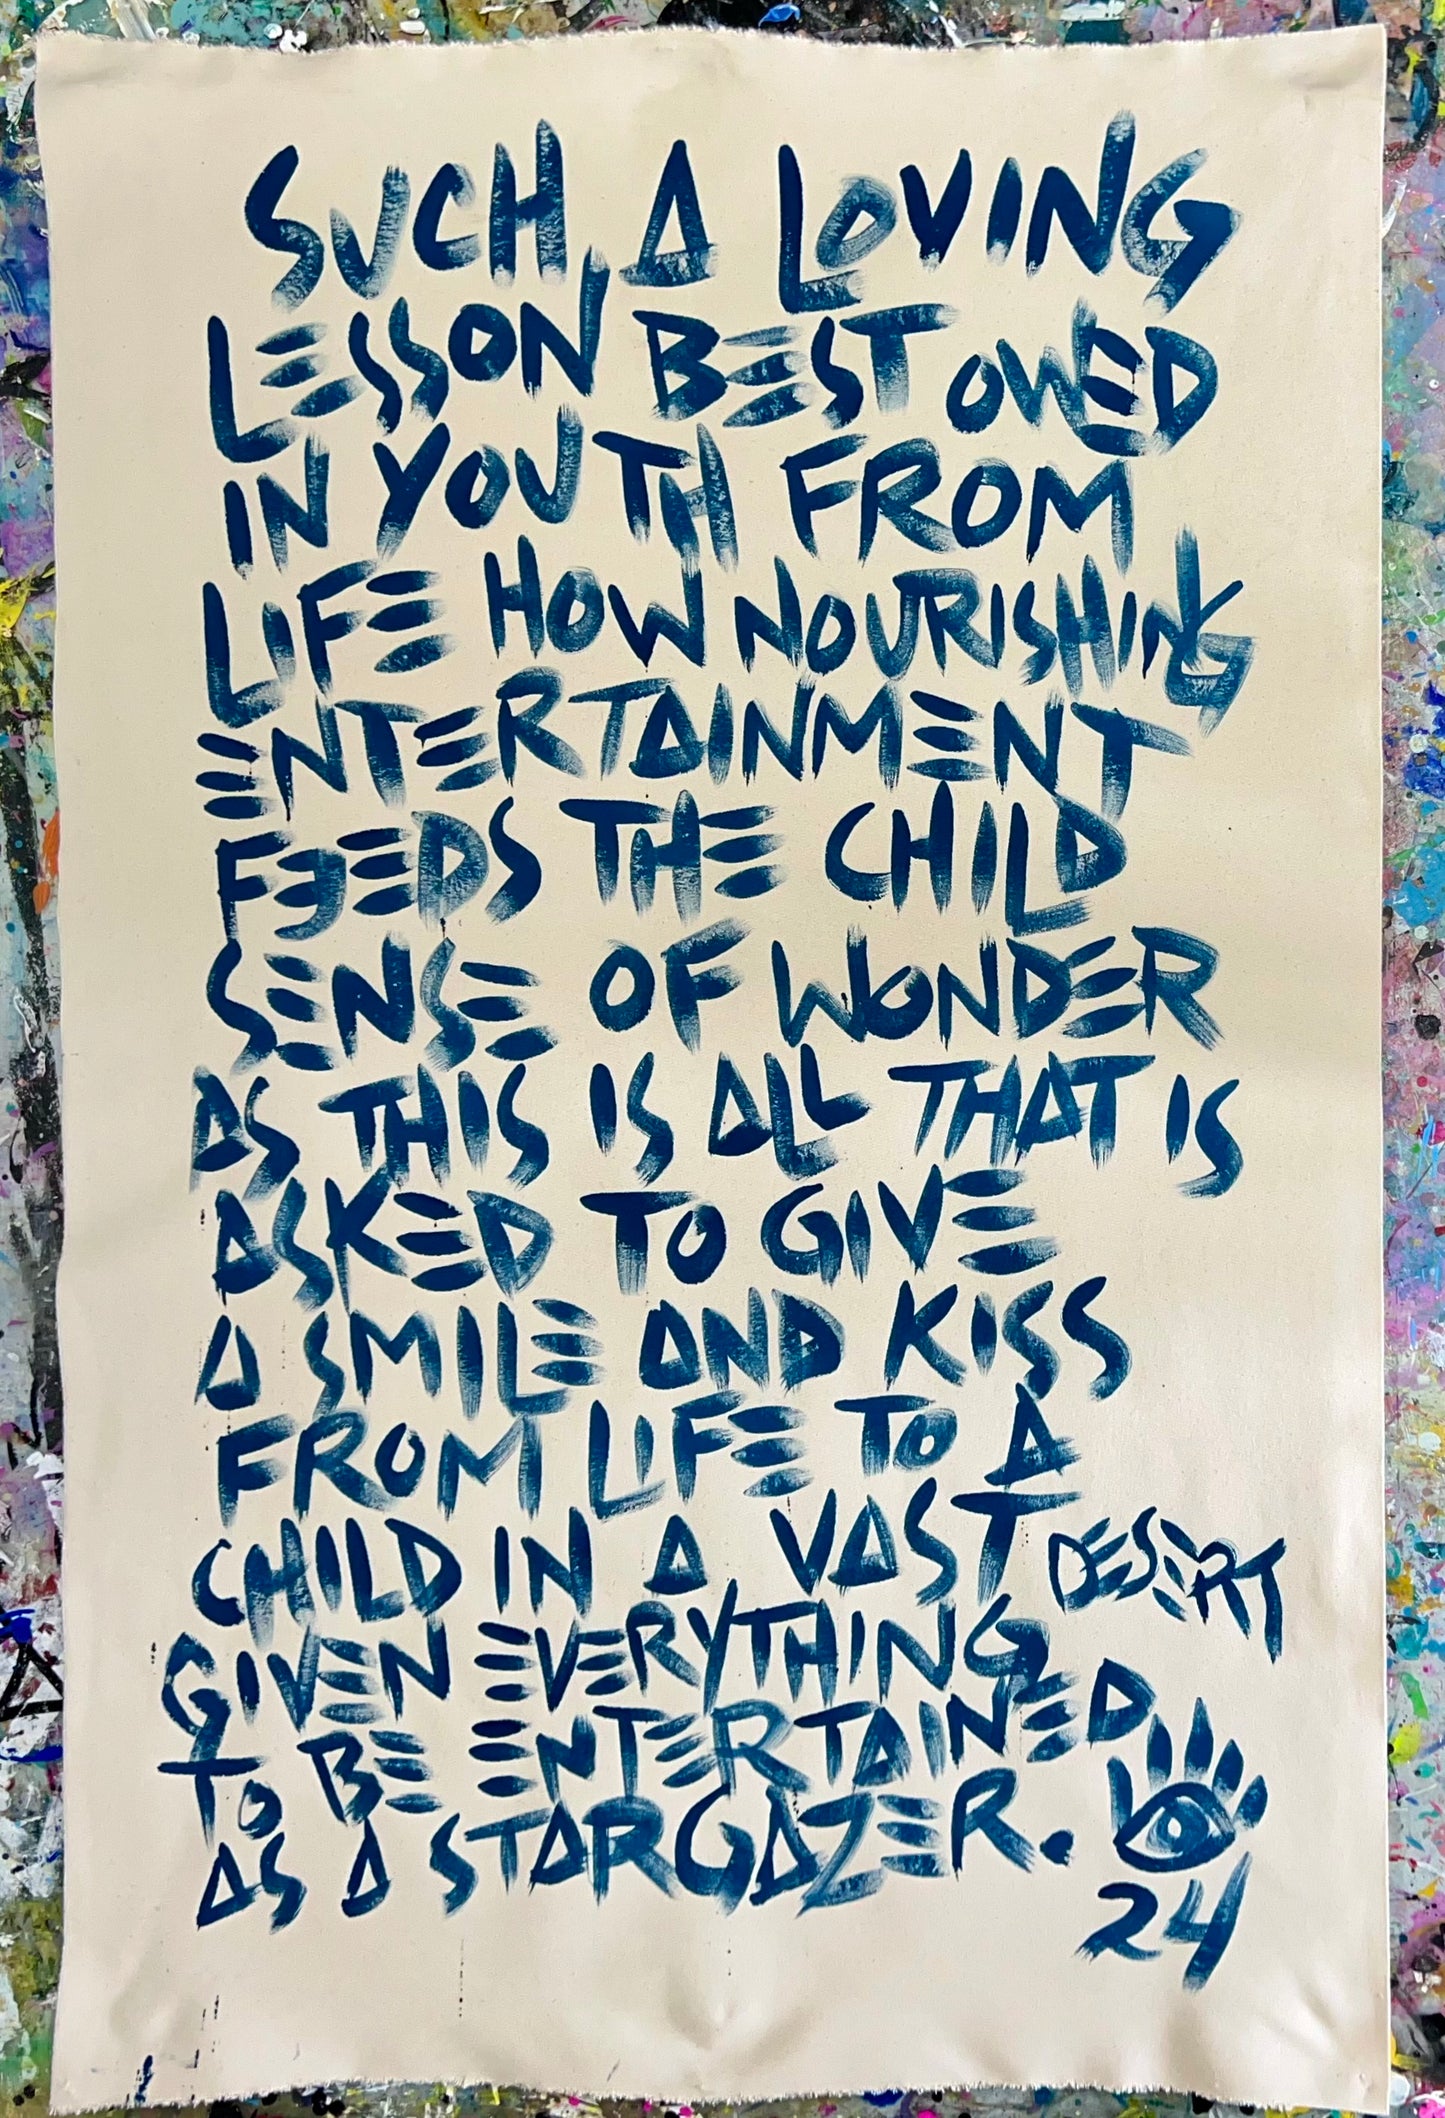 SUCH A LOVING
LESSON, BESTOWED
IN YOUTH FROM
LIFE HOW NOURISHING
ENTERTAINMENT
FEEDS THE CHILD
SENSE OF WONDER
AS THIS IS ALL THAT IS
ASKED TO GIVE
A SMILE AND KISS
FROM LIFE TO A
CHILD IN A VAST DESERT
GIVEN EVERYTHING
TO BE ENTERTAINED
AS A STARGAZER.
24